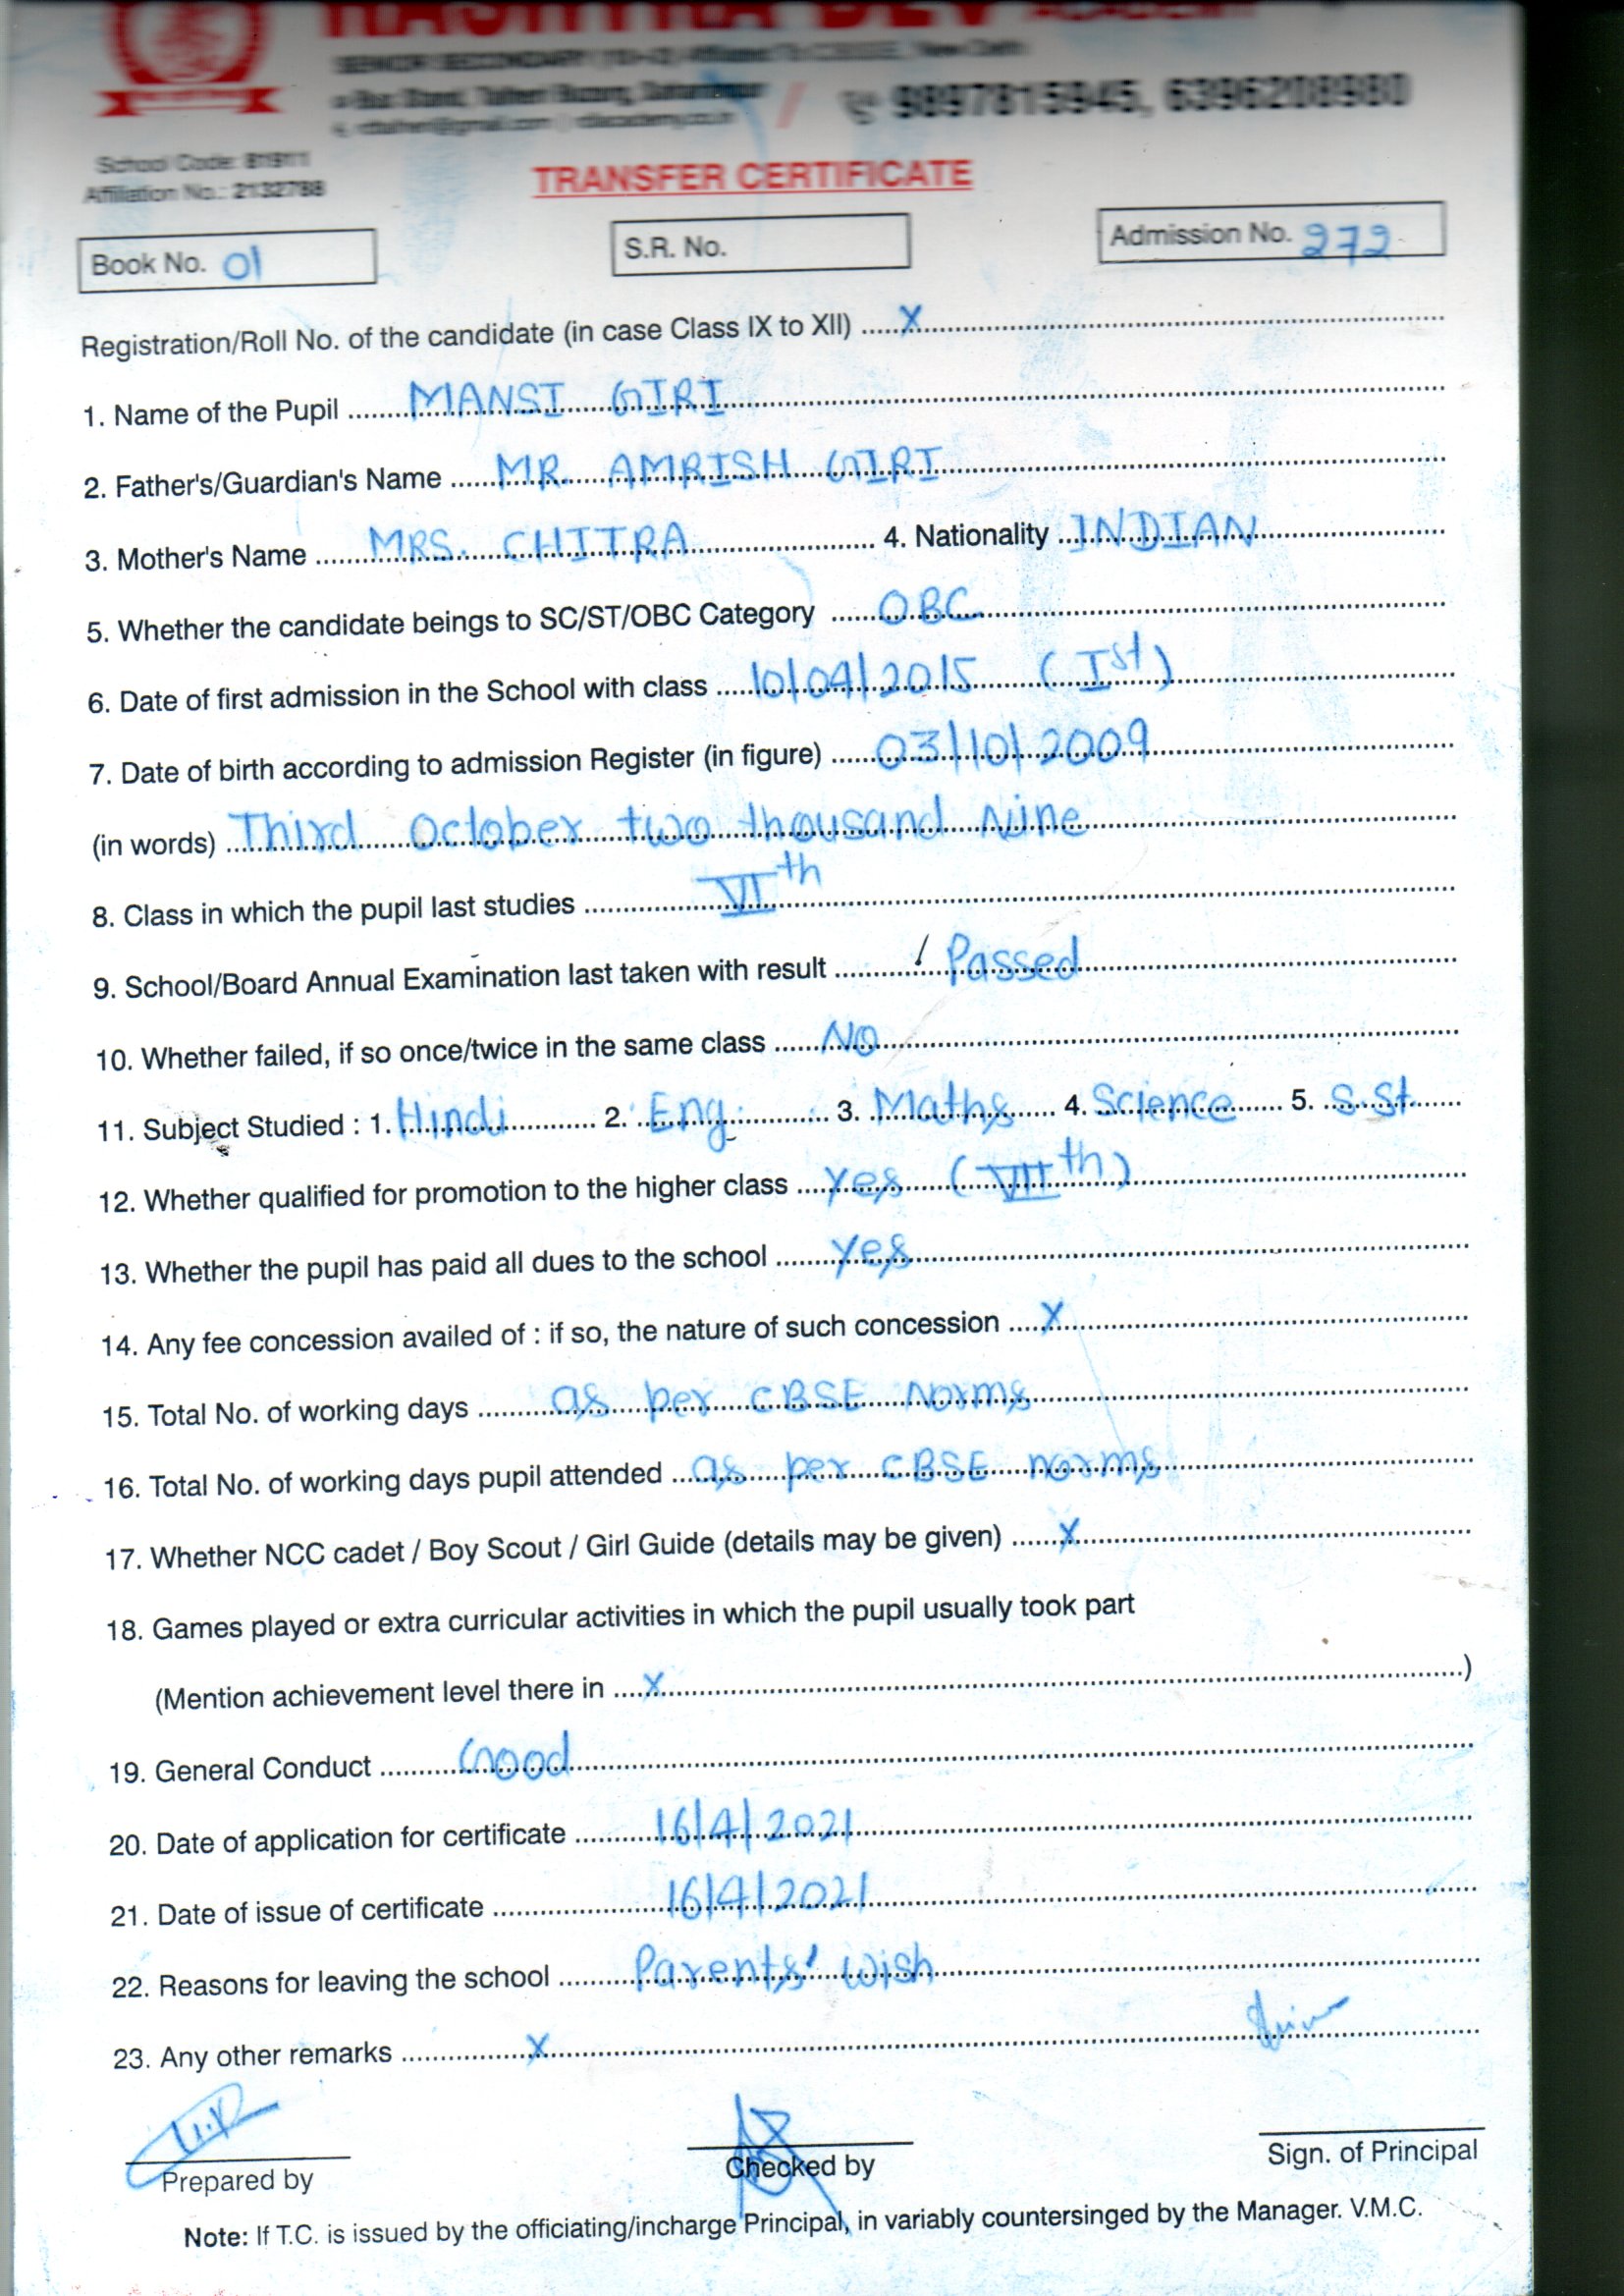 RASHTRA DEV ACADEMY
SENIOR SECONDARY (10+2) Affiliated To C.B.S.E., New Delhi
Bus Stand,
9897815945, 6396208980
School Code: 81911
Affiliation No.: 2132788
TRANSFER CERTIFICATE
Book No. 01
S.R. No.
Admission No. 272
Registration/Roll No. of the candidate (in case Class IX to XII) ..... X
1. Name of the Pupil ..... MANSI GIRI
2. Father's/Guardian's Name ..... MR. AMRISH GIRI
3. Mother's Name ..... MRS. CHITRA ..... 4. Nationality ..... INDIAN
5. Whether the candidate beings to SC/ST/OBC Category ..... OBC
6. Date of first admission in the School with class ..... 10/04/2015 (Ist)
7. Date of birth according to admission Register (in figure) ..... 03/10/2009
(in words) ..... Third October two thousand Nine
8. Class in which the pupil last studies ..... VIth
9. School/Board Annual Examination last taken with result ..... Passed
10. Whether failed, if so once/twice in the same class ..... NO
11. Subject Studied : 1. Hindi ..... 2. Eng. ..... 3. Maths ..... 4. Science ..... 5. S.St.
12. Whether qualified for promotion to the higher class ..... Yes (VIIth)
13. Whether the pupil has paid all dues to the school ..... Yes
14. Any fee concession availed of : if so, the nature of such concession ..... X
15. Total No. of working days ..... as per CBSE Norms
16. Total No. of working days pupil attended ..... as per CBSE norms
17. Whether NCC cadet / Boy Scout / Girl Guide (details may be given) ..... X
18. Games played or extra curricular activities in which the pupil usually took part
(Mention achievement level there in ..... X .....)
19. General Conduct ..... Good
20. Date of application for certificate ..... 16/4/2021
21. Date of issue of certificate ..... 16/4/2021
22. Reasons for leaving the school ..... Parents' wish
23. Any other remarks ..... X
Prepared by
Checked by
Sign. of Principal
Note: If T.C. is issued by the officiating/incharge Principal, in variably countersinged by the Manager. V.M.C.